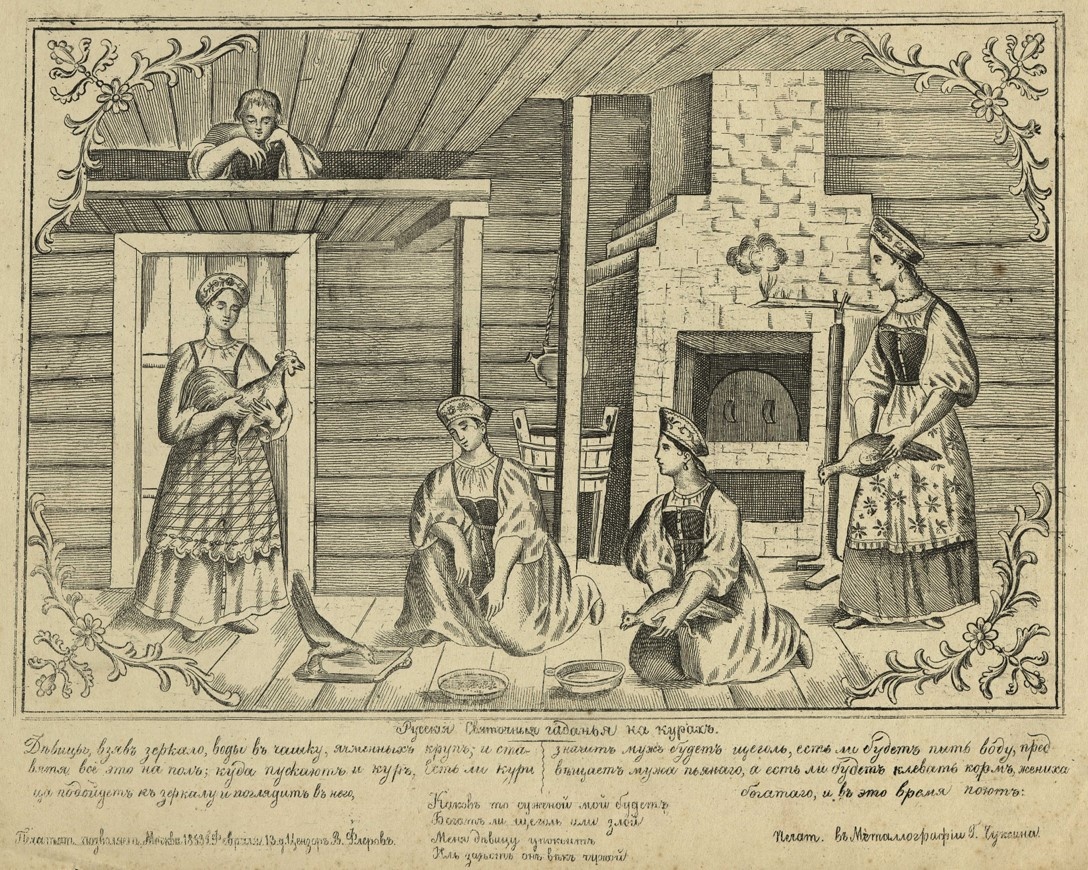 Русскія Святочныя гаданья на курахъ.
Дѣвицы, взявъ зеркало, воды въ чашку, ячменныхъ крупъ; и ста-
вятъ всё это на полъ; куда пускаютъ и куръ, Есть ли кури
ца подойдетъ къ зеркалу и поглядитъ въ него,
значитъ мужъ будетъ щеголь, есть ли будетъ пить воду, пред
вѣщаетъ мужа пьянаго, а есть ли будетъ клевать кормъ, жениха
богатаго, и въ это время поютъ:
Каковъ то суженой мой будетъ
Богатъ ли щеголь или злой
Меня дѣвицу
Иль онъ вѣкъ чужой
Печатать позволяется, Москва. Февраля 13 д. Цензоръ В. Флеровъ.
Печат. въ Металлографіи Г. Чуксина